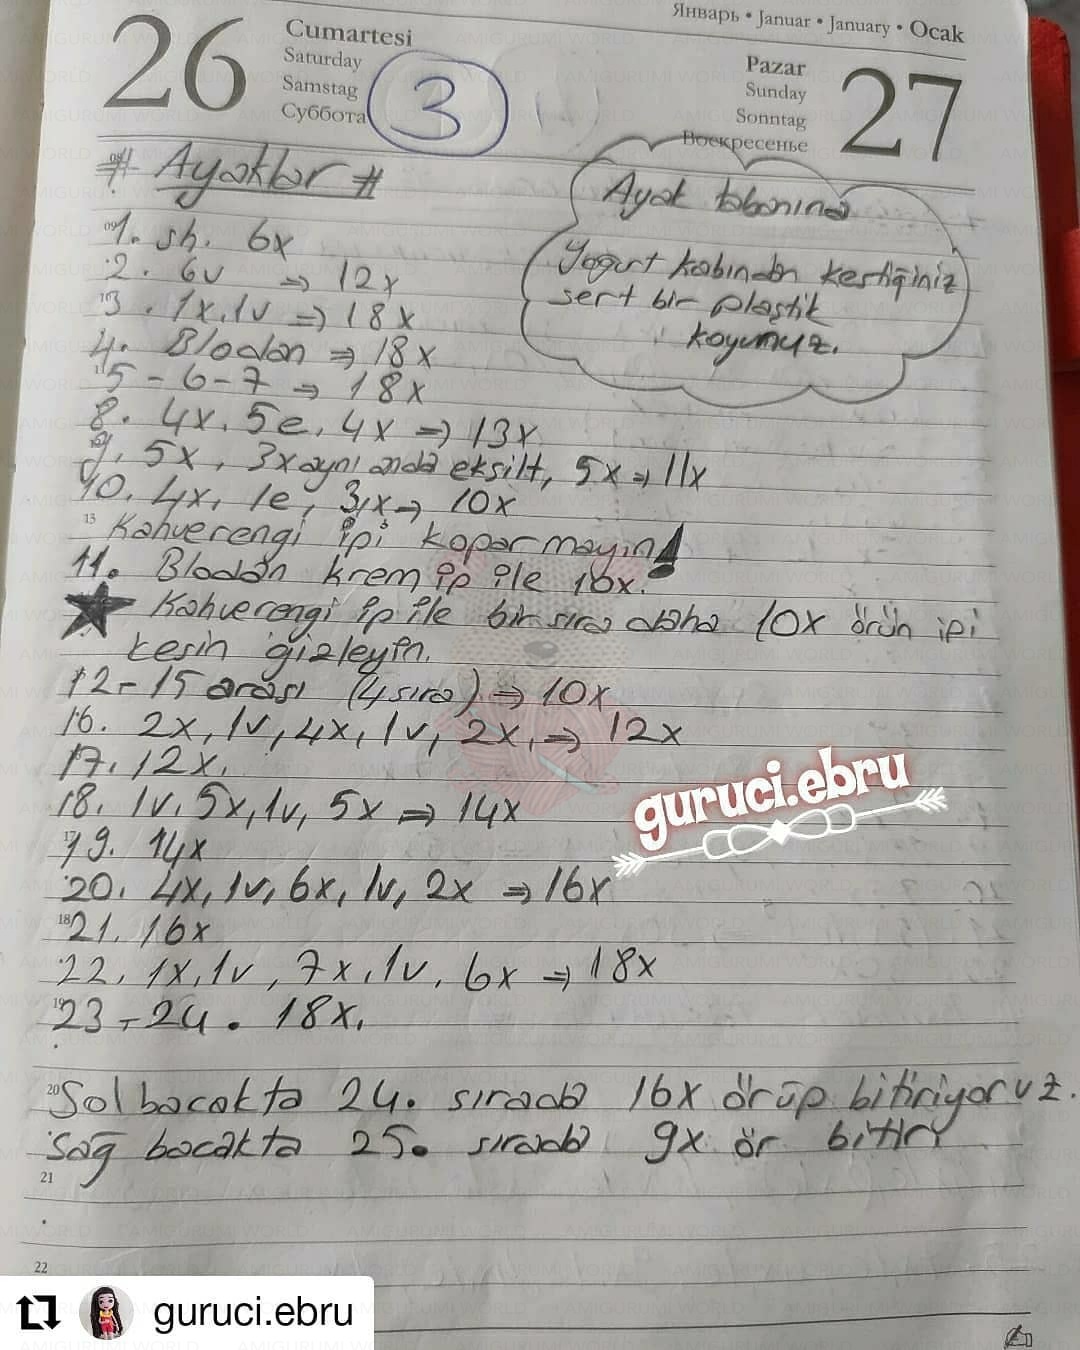 Январь • Januar • January • Ocak
26
Cumartesi
Saturday
Samstag
Суббота
3
Pazar
Sunday
Sonntag
Воскресенье
27
# Ayaklar #
Ayak tabanına
Yoğurt kabından kestiğiniz
sert bir plastik
koyunuz.
09
1. sh. 6x
2. 6v => 12x
10
3. 1x, 1v => 18x
4. Blodan => 18x
11
5-6-7 => 18x
8. 4x, 5e, 4x => 13x
9. 5x, 3x aynı anda eksilt, 5x => 11x
10. 4x, 1e, 3x => 10x
13
Kahverengi ipi koparmayın!
11. Blodan krem ip ile 10x.
★ Kahverengi ip ile bir sıra daha 10x örün ipi
kesin gizleyin.
12-15 arası (4 sıra) => 10x
16. 2x, 1v, 4x, 1v, 2x, => 12x
17. 12x.
18. 1v, 5x, 1v, 5x => 14x
17
19. 14x
20. 4x, 1v, 6x, 1v, 2x => 16x
18
21. 16x
22. 1x, 1v, 7x, 1v, 6x => 18x
19
23-24. 18x.
20
Sol bacakta 24. sırada 16x örüp bitiriyoruz.
Sağ bacakta 25. sırada 9x ör bitir
21
22
guruci.ebru
guruci.ebru